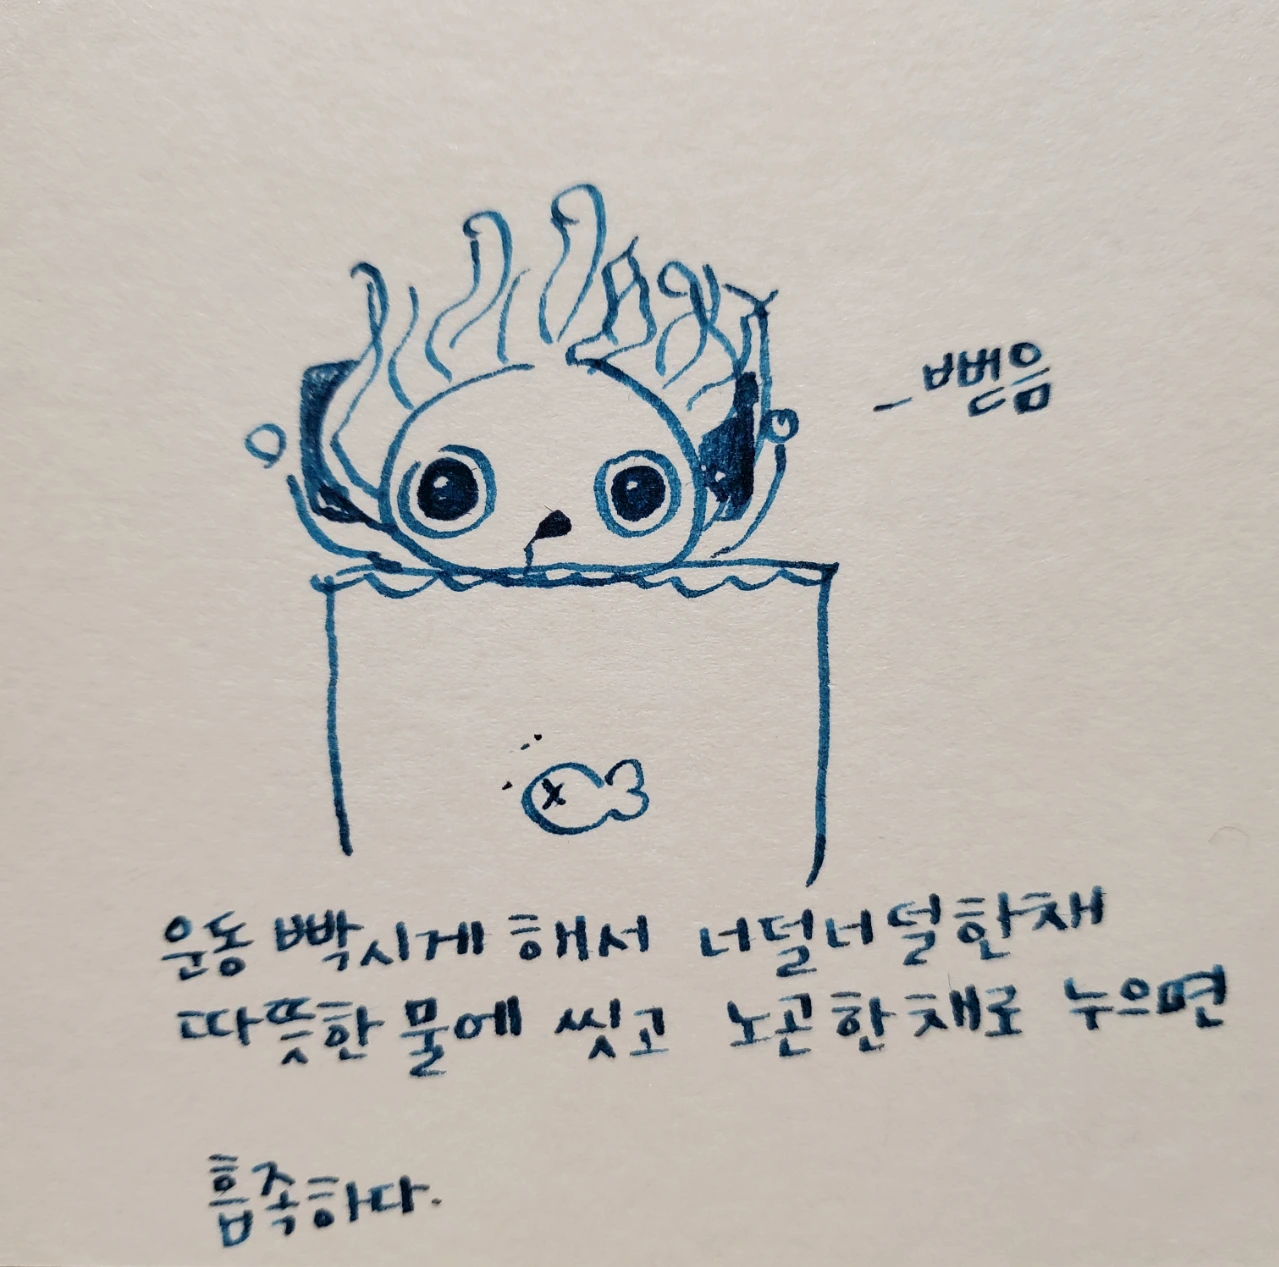 _뻗음
운동 빡시게 해서 너덜너덜한채
따뜻한 물에 씻고 노곤한채로 누으면
흡족하다.